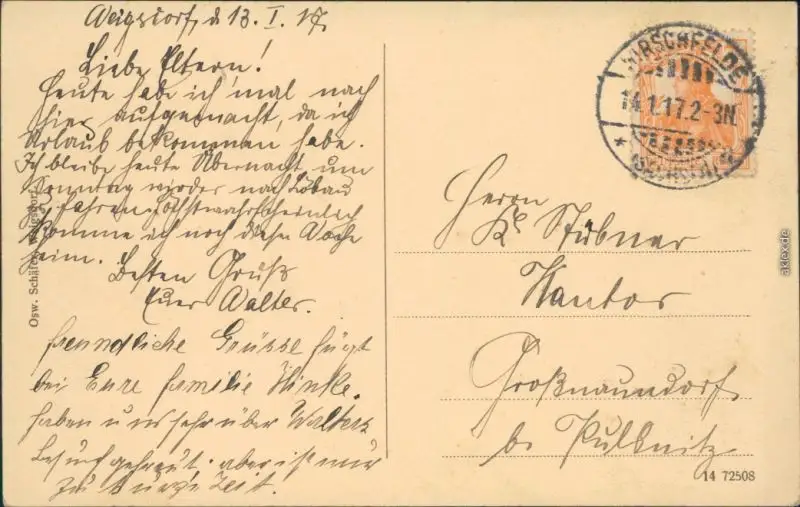 Weigsdorf, d 13. I. 17.
Liebe Eltern!
Heute habe ich mal nach
hier aufgemacht, da ich
Urlaub bekommen habe.
Ich bleibe heute Übernacht um
Sonntag wieder nach Löbau
zu fahren. Höchstwahrscheinlich
komme ich noch diese Woche
heim.
Besten Gruß
Euer Walter.
freundliche Grüsse fügt
bei Eure familie Hinke.
haben uns sehr über Walters
Besuch gefreut. aber ist nur
zu kurze Zeit.
Osw. Schäfer, Weigsdorf
HIRSCHFELDE
14.1.17.2-3N.
* (SACHSEN)
Herrn
Stübner
Kantor
Großnaundorf
b. Pulsnitz
14 72508
akpool.de